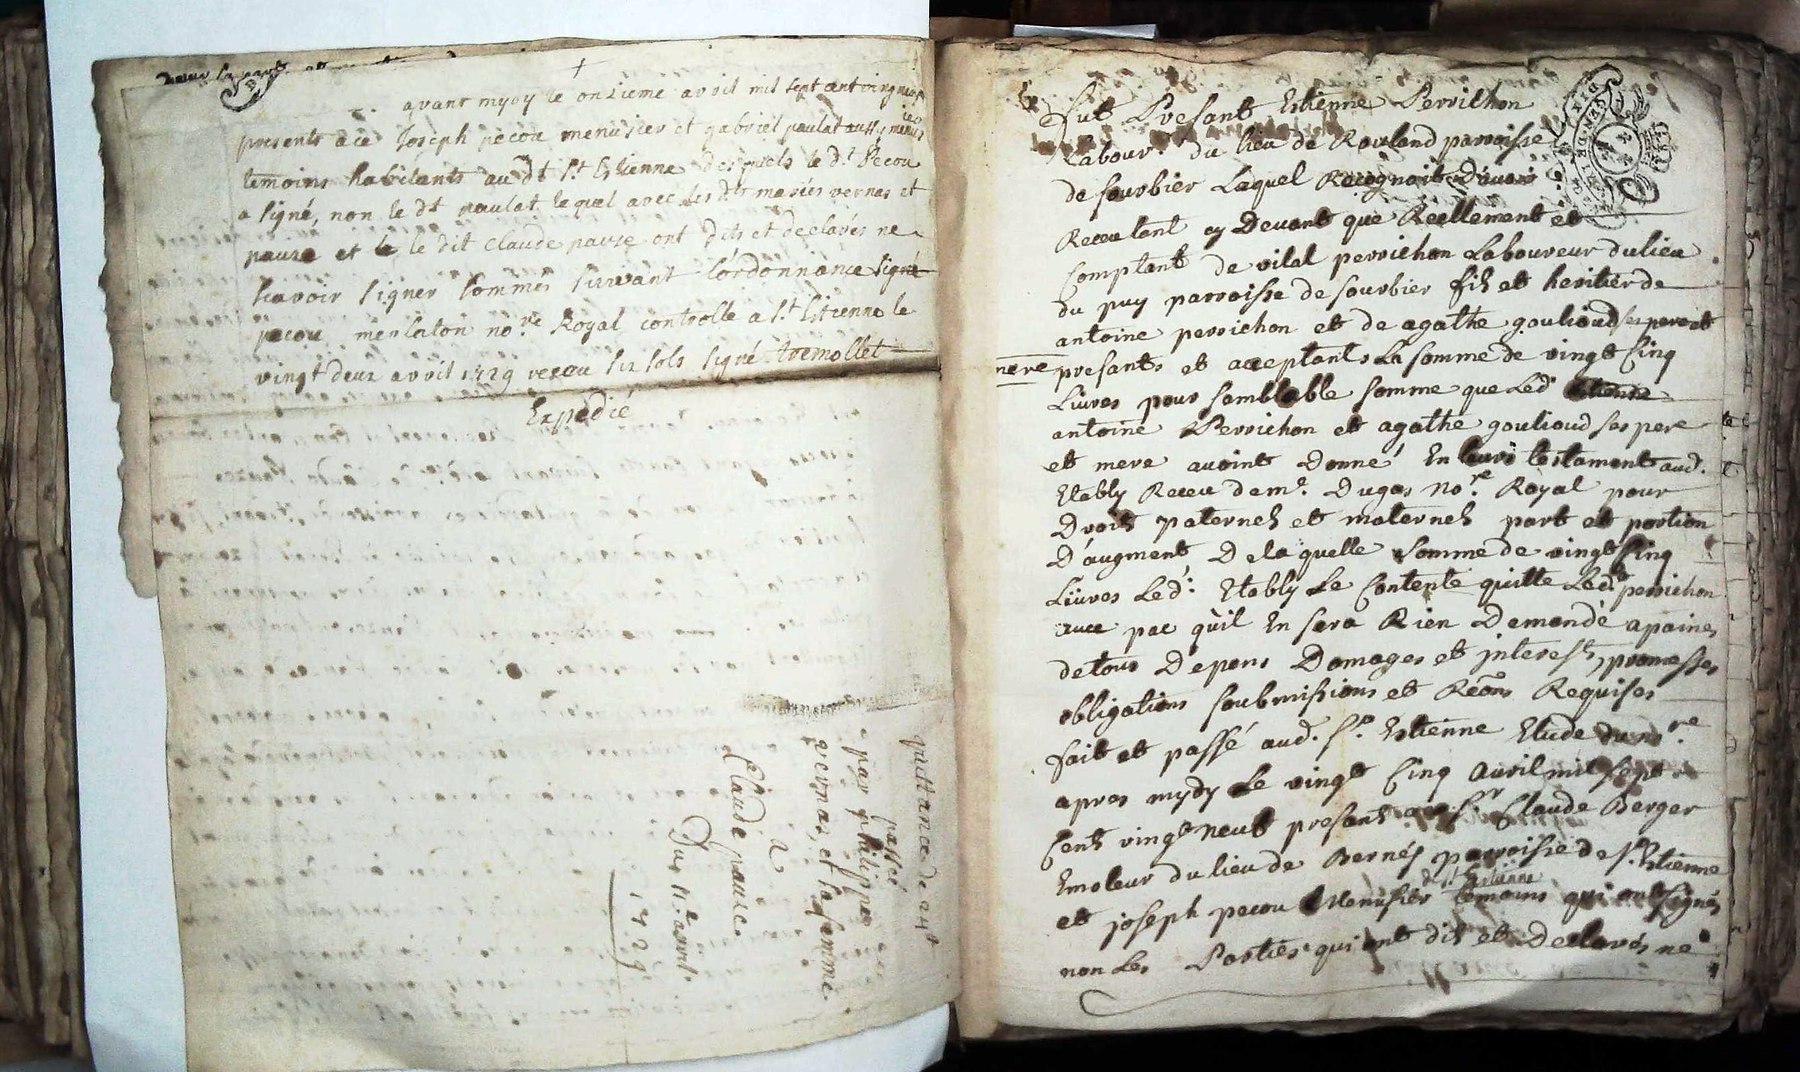 avant mydy le onzieme avril mil sept cent vingt neuf
presents a ce Joseph pecou menusier et gabriel paulat aussy menusier
temoins habitants au dt St Estienne desquels le dt pecou
a signé, non le dt paulat lequel avec les dts mariés vernas et
pauze et le le dit Claude pauze ont dits et declarés ne
scavoir signer sommés suivant l'ordonnance signé
pecou, merlaton nore Royal controllé a St Estienne le
vingt deux avril 1729 receu six sols signé tremollet
Expedié
quittance de 24t
passée
par philippes
vernas, et sa femme
a
Claude pauze
Du 11e avril
1729
Fut Present Estienne Perrichon
Labour. du lieu de Rouland parroisse
de sourbier Laquel Recognoit D'avoir
Receu tant cy Devant que Reellement et
Comptant de vital perrichon Laboureur du lieu
du puy parroisse de sourbier fils et heritier de
antoine perrichon et de agathe goulioud ses pere et
mere presants et aceptants La somme de vingt Cinq
Livres pour semblable somme que Led. Estienne
antoine Perrichon et agathe goulioud ses pere
et mere avoint Donné En leurs testament aud.
Etably Receu de me. Dugas Nore. Royal pour
Droits paternels et maternels part et portion
D'augment De laquelle somme de vingt Cinq
Livres Led. Etably Se Contente quitte Led. perrichon
avec pac qu'il En sera Rien Demandé a paines
de tous Depens Domages et interests, promesses
obligations soubmissions et Réons Requises
fait et passé aud. St. Estienne Etude du nore.
apres mydy Le vingt Cinq Avril mil sept
Cents vingt neuf presents a ce Sr Claude Berger
Emoleur du lieu de Bernés parroisse de St Estienne
dud. St Estienne
et joseph pecou Menusier temoins qui ont signés
non Les Parties qui ont dit et Declarés ne